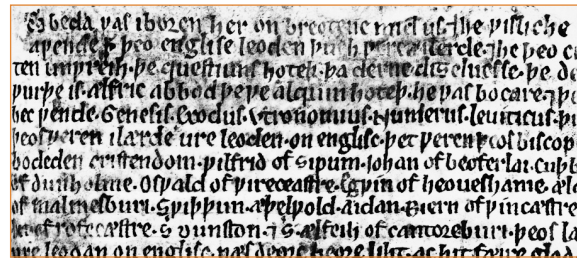 S beda ƿas iboren her on breotene mid us. ⁊he ƿisliche
aƿende. þ þeo englise leoden þurh ƿeren ilerde. ⁊he þeo c
ten unƿreih. þe questiuns hoteþ. þa derne diȝelnesse. þe de
ƿurþe is. ælfric abbod þe ƿe alquin hoteþ. he ƿas bocare. ⁊þ
bec ƿende. Genesis. Exodus. Vtronomius. Numerus. leuiticus. þu
þeos ƿeren ilærde ure leoden. on englisc. þet ƿeren þeos biscop
bodeden cristendom. ƿilfrid of ripum. Iohan of beoferlai. cuþb
of dunholme. Osƿald of ƿireceastre. Egƿin of heoueshame. æld
of malmesburi. Sƿiþþun. æþelƿold. aidan. Biern of ƿincæstre
of rofecæstre. S dunston. ⁊ S ælfeih of cantoreburi. þeos læ
ure leodan on englisc. næs deorc heore liht. ac hit fæire glod